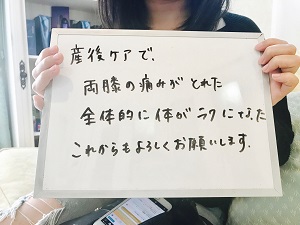 産後ケアで、
両膝の痛みがとれた
全体的に体がラクになった
これからもよろしくお願いします.